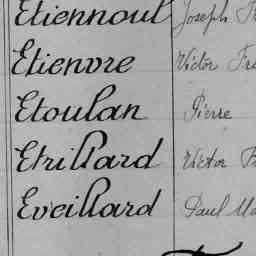 Etiennoul Joseph
Etienvre Victor
Etoulan Pierre
Etrillard Victor
Eveillard Paul